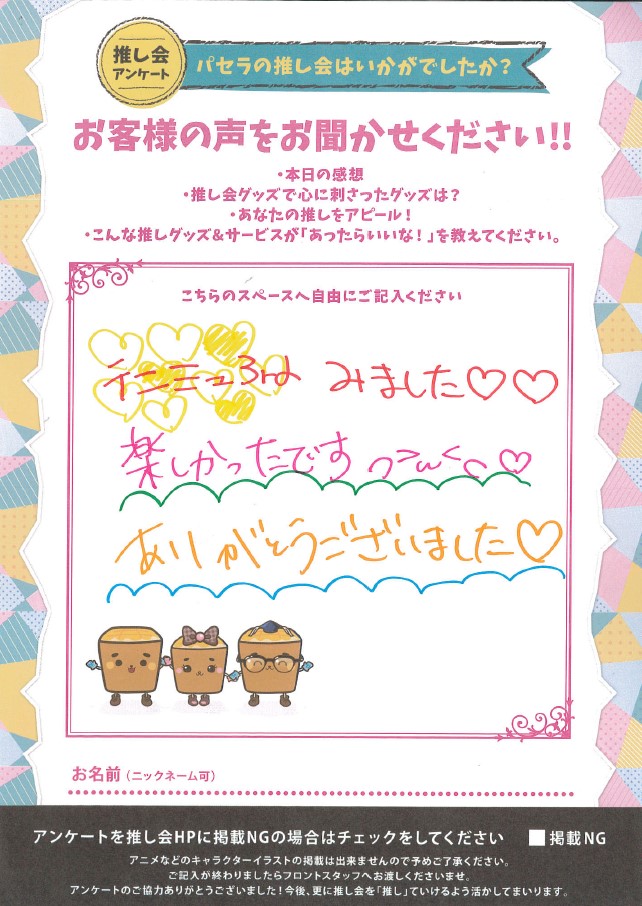 推し会
アンケート
パセラの推し会はいかがでしたか？
お客様の声をお聞かせください!!
・本日の感想
・推し会グッズで心に刺さったグッズは？
・あなたの推しをアピール！
・こんな推しグッズ&サービスが「あったらいいな！」を教えてください。
こちらのスペースへ自由にご記入ください
みました♡♡
楽しかったです
ありがとうございました♡
お名前（ニックネーム可）
アンケートを推し会HPに掲載NGの場合はチェックをしてください ■掲載NG
アニメなどのキャラクターイラストの掲載は出来ませんので予めご了承ください。
ご記入が終わりましたらフロントスタッフへお渡しくださいませ。
アンケートのご協力ありがとうございました！今後、更に推し会を「推し」ていけるよう活かしてまいります。